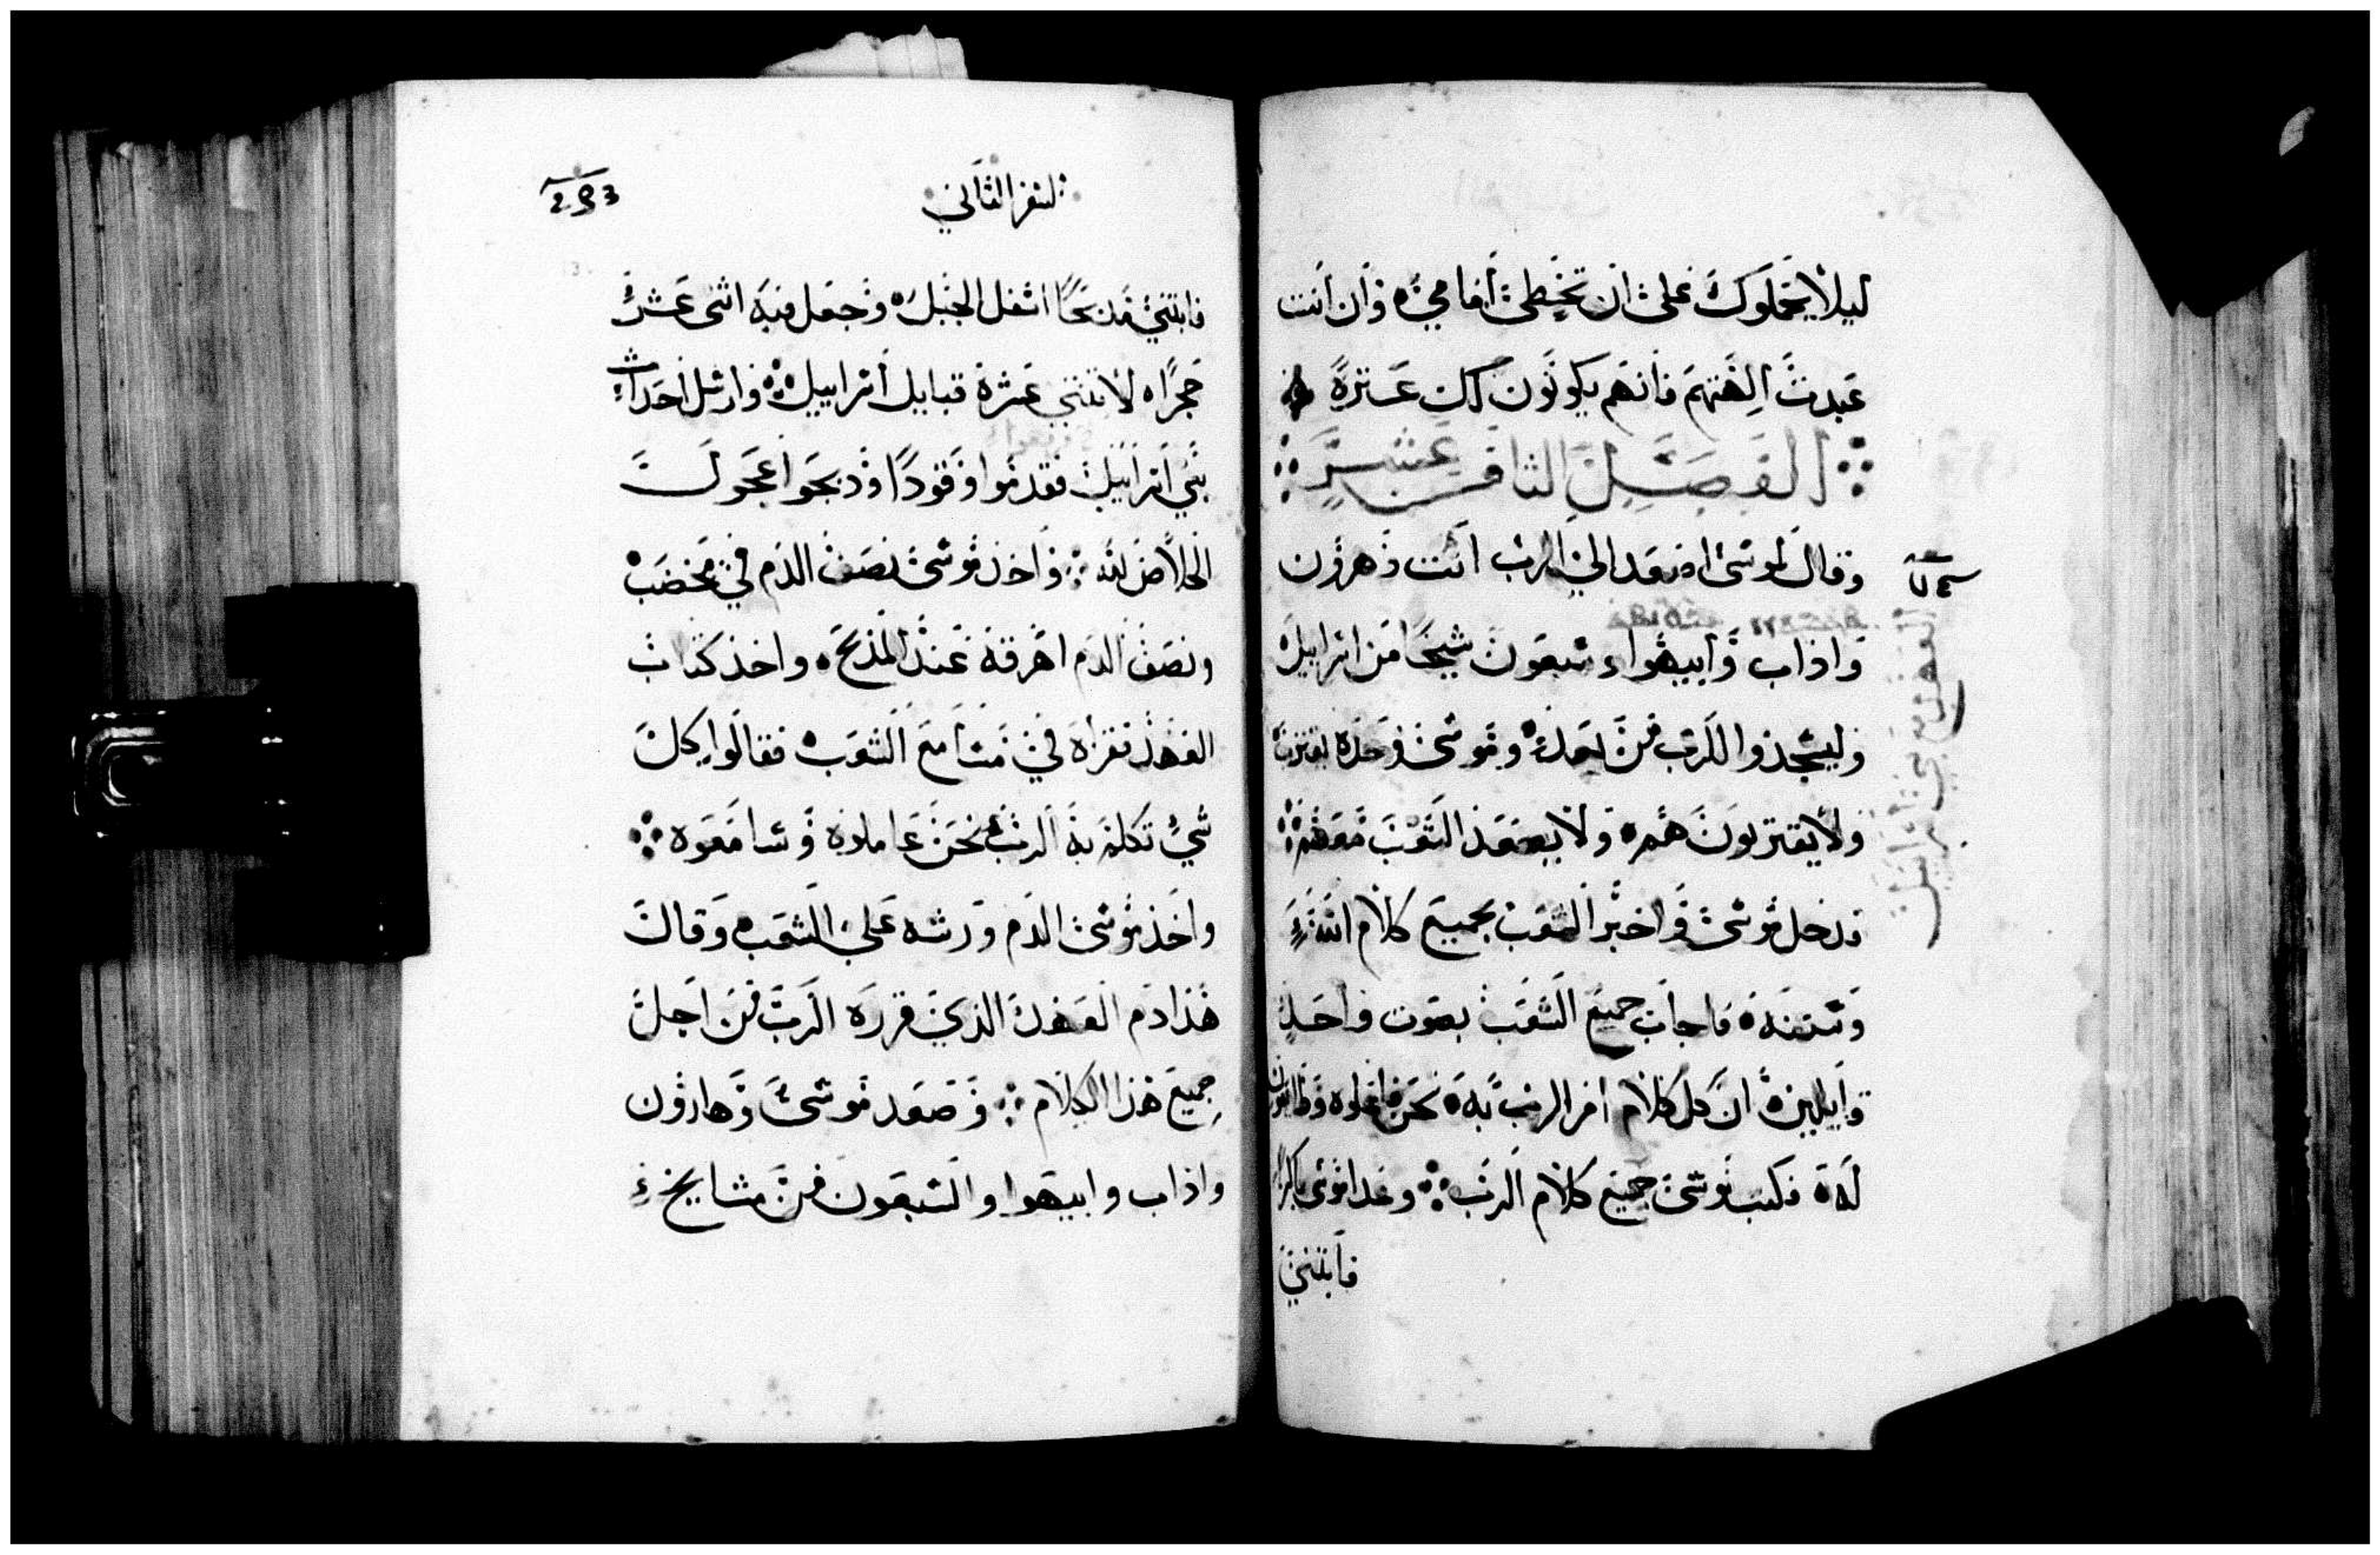 ليلا يحملوك على ان تخطى أمامي وان أنت
عبدت الهتهم فانهم يكونون لك عثرة
الفصل الثامن عشر
وقال لموسى اصعد الى الرب انت وهرون
واذاب وابيهوا وسبعون شيخا من اسراييل
وليسجدوا للرب من بعد وموسى وحده يقترب
ولا يقتربون هم ولا يصعد الشعب معهم
فدخل موسى واخبر الشعب بجميع كلام الله
وسننه فاجاب جميع الشعب بصوت واحد
وايلين ان كل كلام امر الرب به نحن نفعله وطايعون
له فكتب موسى جميع كلام الرب وغدا موسى باكرا
فابتنى
العهد مع بني اسراييل
السفر الثاني
فابتنى مدبحا اسفل الجبل وجعل فيه اثنى عشر
حجرا لاثنتي عشرة قبايل اسراييل وارسل احداث
بني اسراييل فقدموا وقودا ودبحوا عجول
الخلاص لله واخذ موسى نصف الدم في مخضب
ونصف الدم اهرقه عند المذبح واخذ كتاب
العهد فقراه في مسامع الشعب فقالوا كل
شي تكلم به الرب نحن عاملوه وسامعوه
واخذ موسى الدم ورشه على الشعب وقال
هذا دم العهد الذي قرره الرب من اجل
جميع هذا الكلام وصعد موسى وهارون
واذاب وابيهوا والسبعون من مشايخ